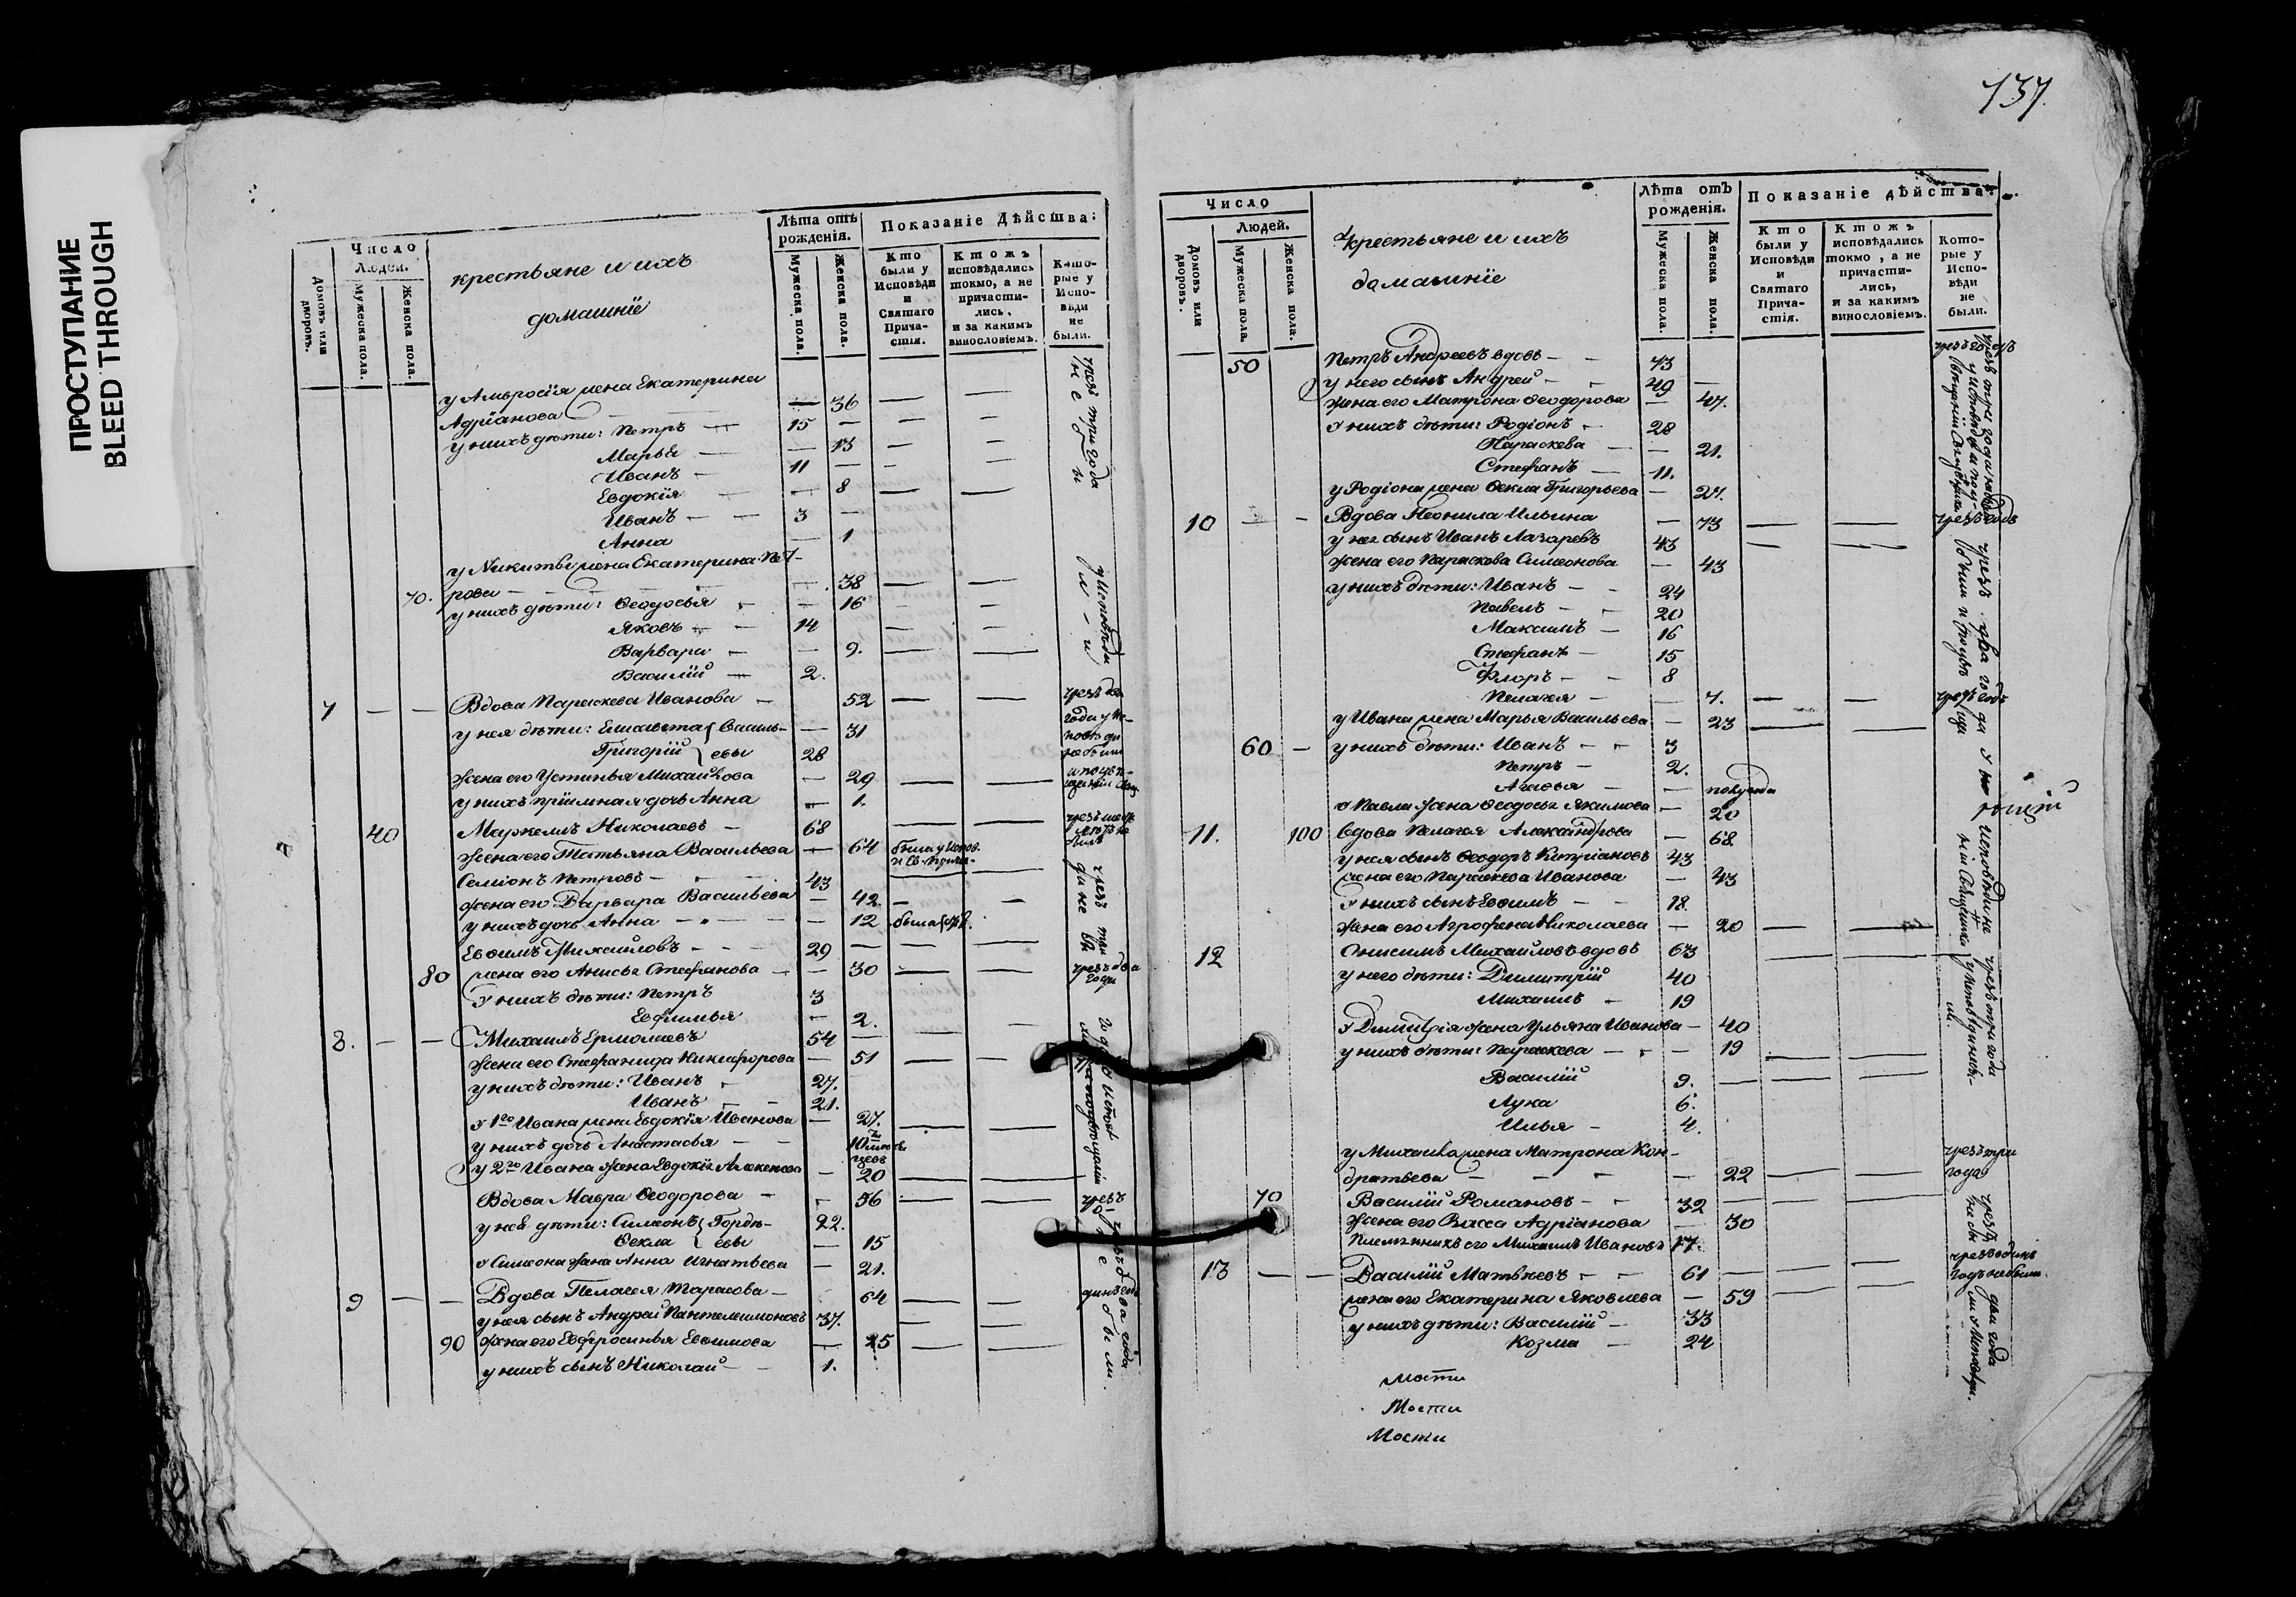 137.
ПРОСТУПАНИЕ
BLEED THROUGH
Число
Людей.
Домовъ или дворовъ.
Мужеска пола.
Женска пола.
крестьяне и ихъ
домашнiе
Лѣта отъ рожденiя.
Мужеска пола.
Женска пола.
Показанiе Дѣйства:
Кто были у Исповѣди и Святаго Прича-стiя.
Ктожъ исповѣдались токмо, а не причасти-лись, и за какимъ винословiемъ.
Кото-рые у Испо-вѣди не были.
у Амвросiя жена Екатерина
Адрiанова — 36 — —
у нихъ дѣти: Петръ — 15 — — —
Марья — — 13 — —
Иванъ — 11 — — —
Евдокiя — — 8 — —
Иванъ — — 3 —
Анна — 1
у Никиты жена Екатерина Пет-
70. рова — — — 38 — —
у нихъ дѣти: Ѳеодосья — — 16 — —
Яковъ — — 14 — —
Варвара — — 9. — —
Василiй — 2.
чрезъ три года
у Исповѣди
7 — — Вдова Параскева Иванова — 52 — — чрезъ два
у нея дѣти: Елисавета Василь- — 31 года у Ис-
Григорiй евы 28 повѣди
не были
жена его Устинья Михайлова — 29 — —
у нихъ прiимная дочь Анна — 1.
40 Маркелъ Николаевъ — 68 — —
жена его Татьяна Васильева — 64 была у Испов.
и Св. Прича-
Семiонъ Петровъ — 43 —
жена его Варвара Васильева — 42 — —
у нихъ дочь Анна — — — 12 была
Евѳимъ Михайловъ — — 29 — —
80 жена его Анисья Стефанова — — 30 — — чрезъ два
года
у нихъ дѣти: Петръ 3
Евфимья — 2.
8. — — Михаилъ Ермолаевъ 54 — — —
жена его Стефанида Никифорова — 51 — —
у нихъ дѣти: Иванъ 27.
Иванъ — — 21.
у 1го Ивана жена Евдокiя Иванова — 27. — —
у нихъ дочь Анастасья — — 10
у 2го Ивана жена Евдокiя Алексеева — 20 — —
Вдова Мавра Ѳеодорова — — 56 — — чрезъ
у нея дѣти: Симеонъ Гордѣ- 22.
Ѳекла евы — 15
у Симеона жена Анна Игнатьева — 21.
9 — — Вдова Пелагея Тарасова — 64 — —
у нея сынъ Андрей Пантелеимоновъ 37. — —
90 жена его Евфросинья Евѳимова — 25 — —
у нихъ сынъ Николай — 1.
Число
Людей.
Домовъ или дворовъ.
Мужеска пола.
Женска пола.
крестьяне и ихъ
домашнiе
Лѣта отъ рожденiя.
Мужеска пола.
Женска пола.
Показанiе дѣйства:
Кто были у Исповѣди и Святаго Прича-стiя.
Ктожъ исповѣдались токмо, а не причасти-лись, и за какимъ винословiемъ.
Кото-рые у Испо-вѣди не были.
50 Петръ Андреевъ вдовъ — — 73
у него сынъ Андрей — — 49 —
жена его Матрона Ѳеодорова — 47.
у нихъ дѣти: Родiонъ — 28
Параскева — — 21.
Стефанъ — 11.
у Родiона жена Ѳекла Григорьева — 27.
10 — — Вдова Неонила Ильина — 73 — —
у нея сынъ Иванъ Лазаревъ 43 — —
жена его Параскева Симеонова — 43
у нихъ дѣти: Иванъ — — 24
Павелъ — — 20
Максимъ — 16
Стефанъ — 15
Флоръ — — 8
Пелагея — — 7. — —
у Ивана жена Марья Васильева — 23 — —
60 — у нихъ дѣти: Иванъ — — 3
Петръ — 2.
Агафья — — полугода
у Павла жена Ѳеодосья Якимова — 20
11. 100 вдова Пелагея Александрова — 68
у нея сынъ Ѳеодоръ Кипрiановъ 43
жена его Параскева Иванова — 43
у нихъ сынъ Евѳимъ — — 18.
жена его Агрофена Николаева — 20 — —
12 Онисимъ Михайловъ вдовъ 63 — —
у него дѣти: Димитрiй 40
Михаилъ — 19
у Димитрiя жена Ульяна Иванова — 40
у нихъ дѣти: Параскева — — — 19 — —
Василiй 9. — — —
Лука 6.
Илья — 4.
у Михаила жена Матрона Кон-
дратьева — — — — 22 — — чрезъ три
года
70 Василiй Романовъ — — 32 — — —
жена его Васса Адрiанова — 30
Племянникъ его Михаилъ Ивановъ 17.
13 — — Василiй Матвеевъ — — 61 — — чрезъ одинъ
годъ не были.
жена его Екатерина Яковлева — 59 — —
у нихъ дѣти: Василiй — 33
Козма — 24
Мости
Мости